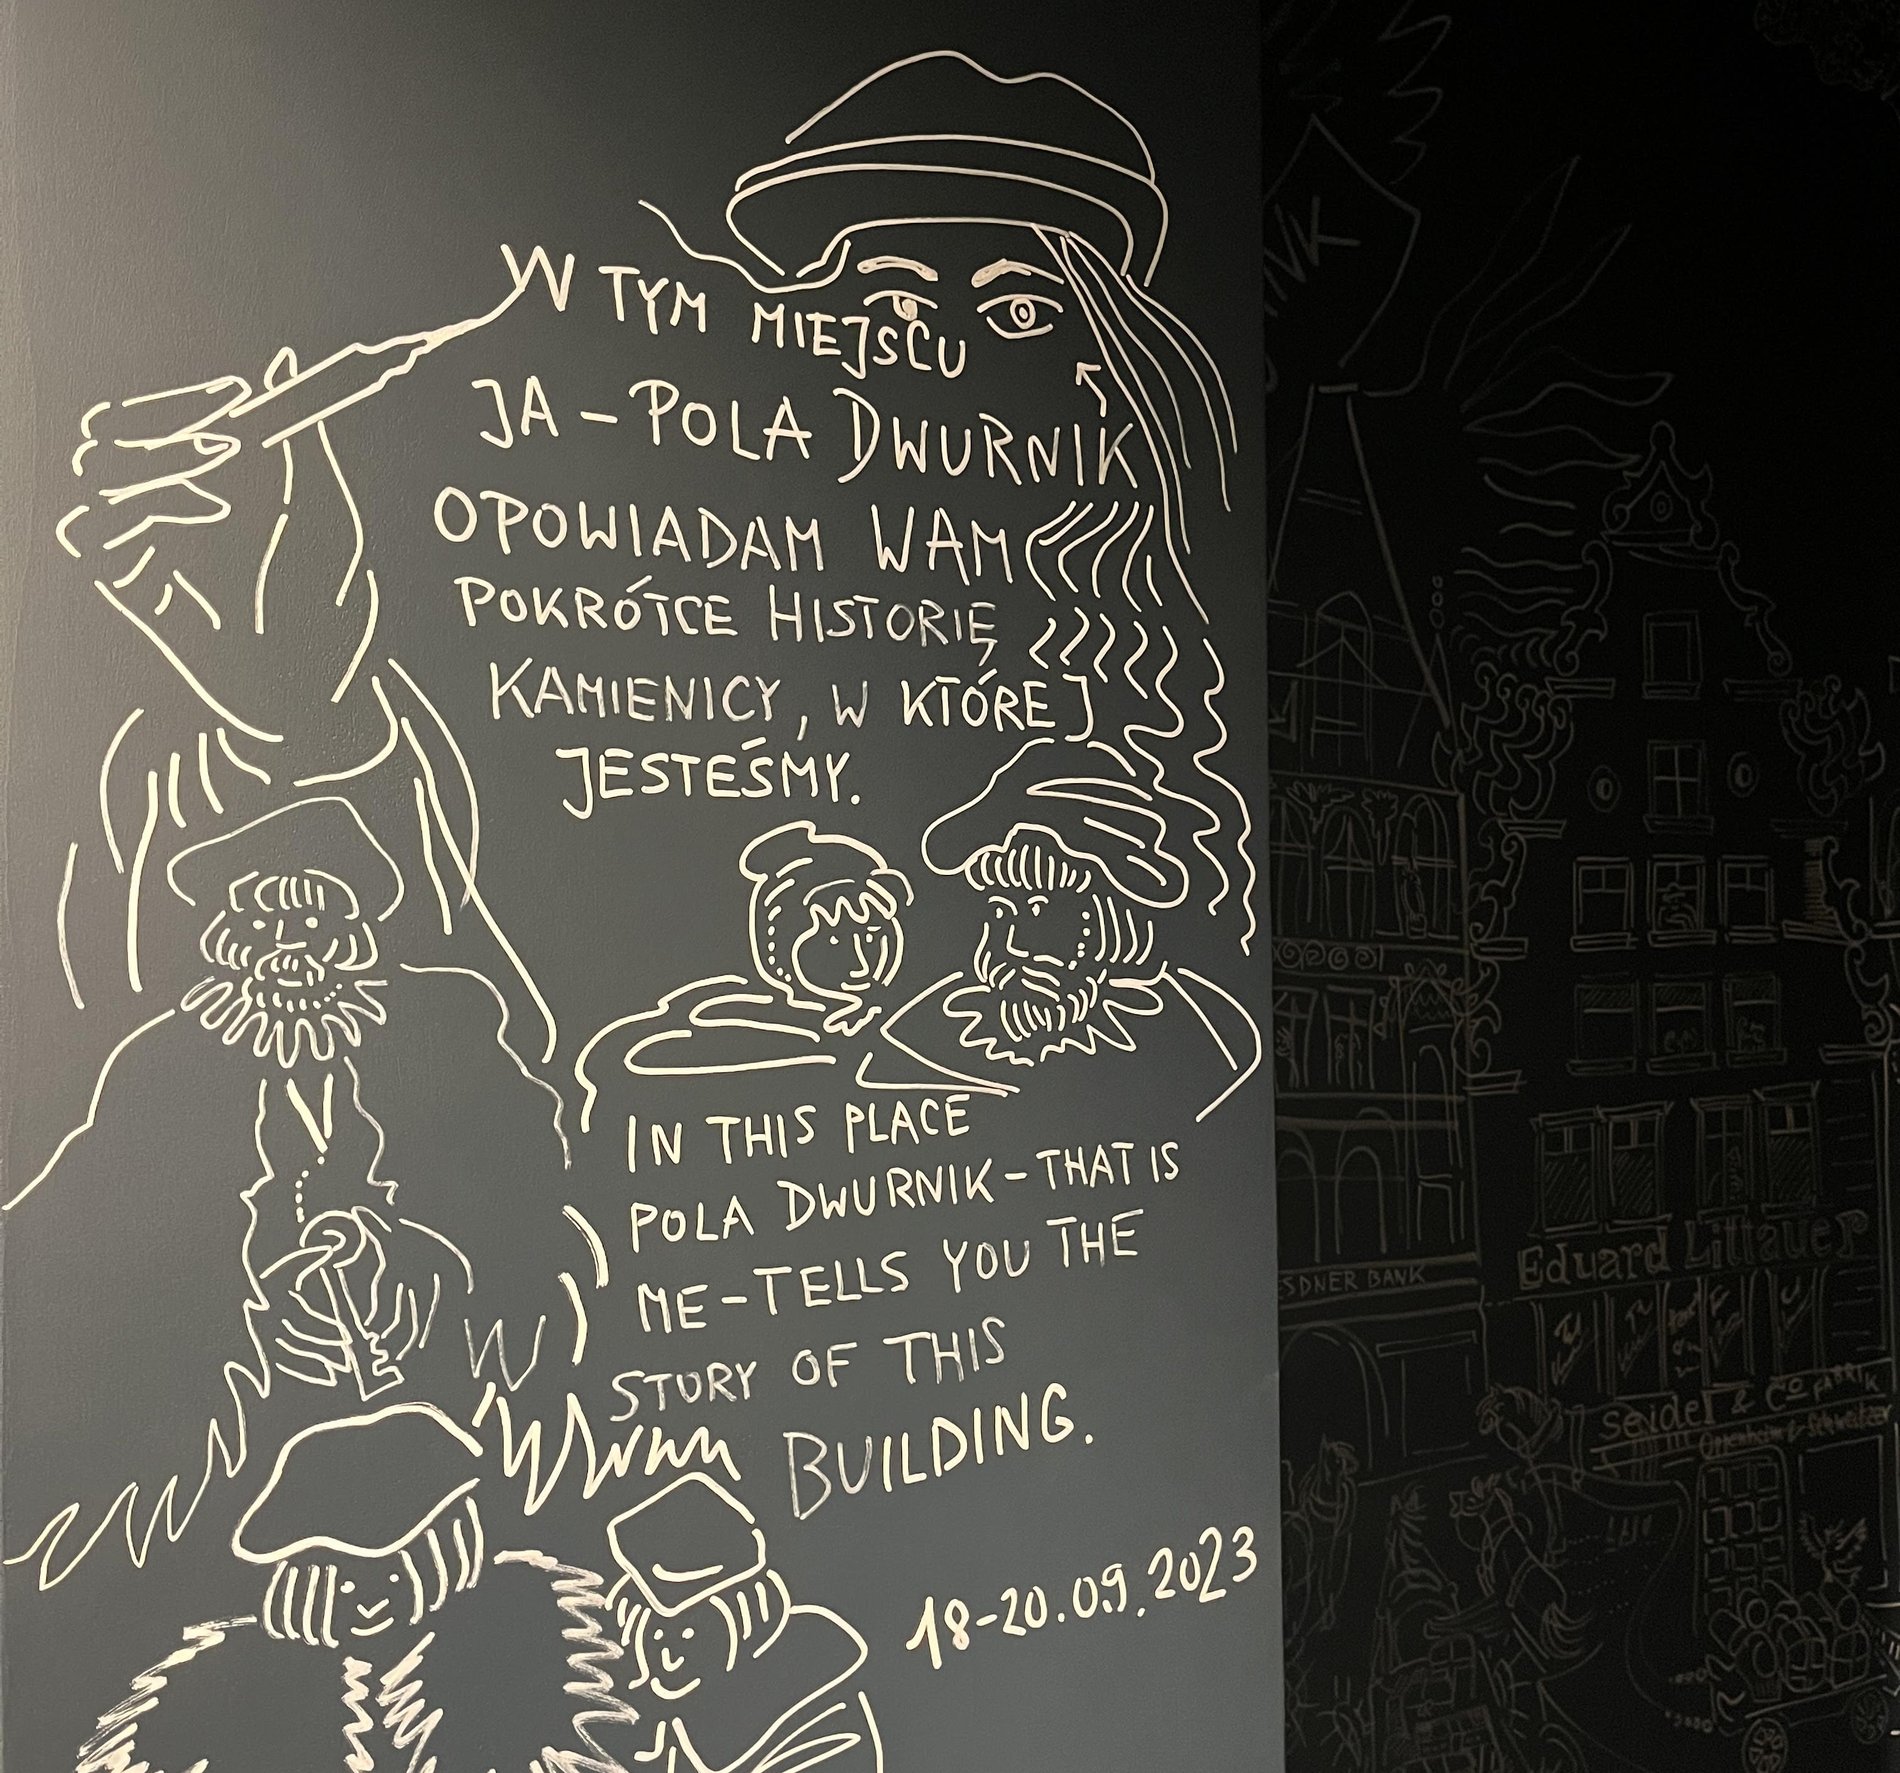 W TYM MIEJSCU
JA - POLA DWURNIK
OPOWIADAM WAM
POKRÓTCE HISTORIĘ
KAMIENICY, W KTÓREJ
JESTEŚMY.
IN THIS PLACE
POLA DWURNIK - THAT IS
ME - TELLS YOU THE
STORY OF THIS
BUILDING.
18-20.09.2023
SDNER BANK
Eduard Littauer
Seidel & Co FABRIK